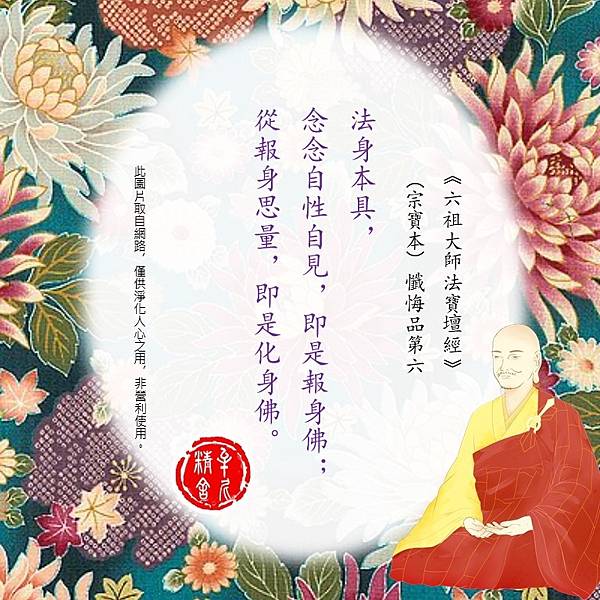 《六祖大師法寶壇經》
（宗寶本）懺悔品第六
法身本具，
念念自性自見，即是報身佛；
從報身思量，即是化身佛。
此圖片取自網路，僅供淨化人心之用，非營利使用。
精舍